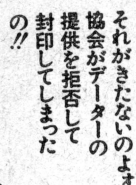 それがきたないのよォ
協会がデーターの
提供を拒否して
封印してしまった
の!!